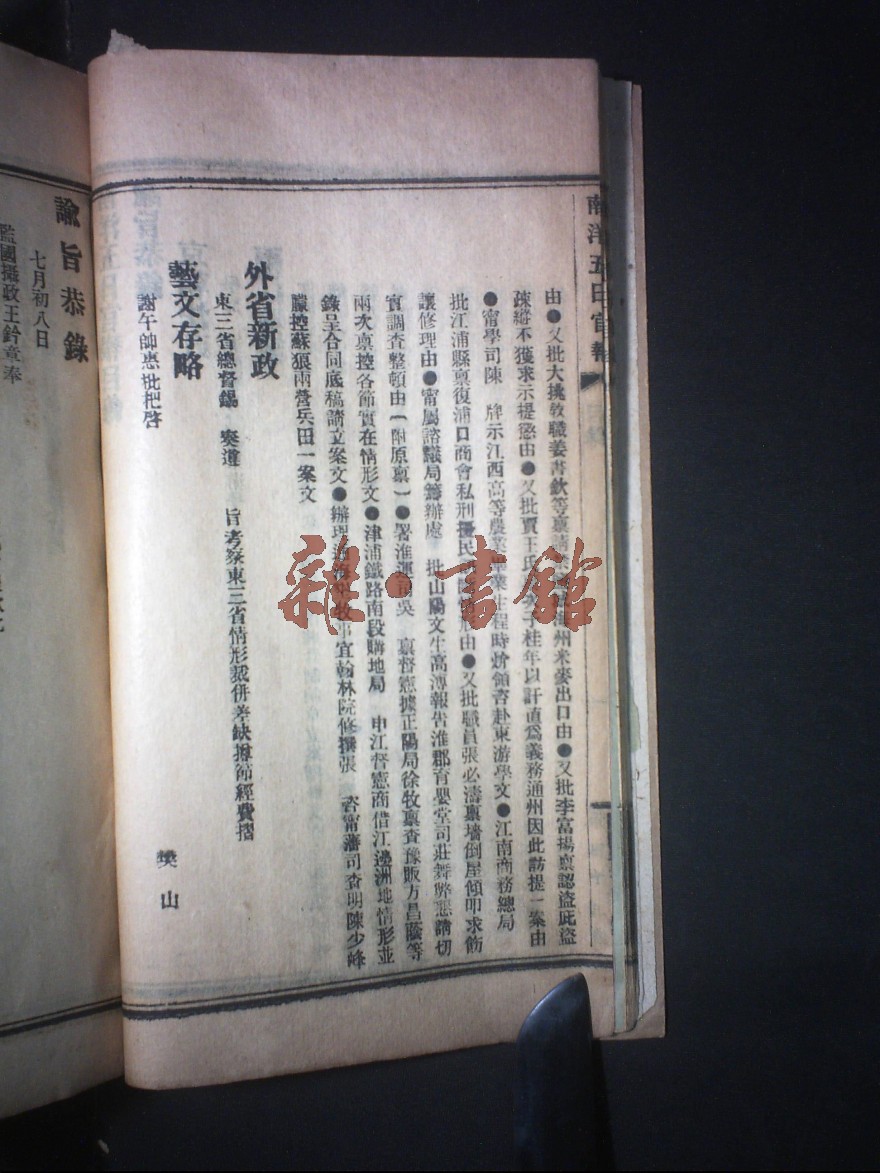 南洋五日官報
由●又批大挑敎職姜書欽等稟請 州米麥出口由●又批李富揚稟認盜庇盜
疎縱不獲求示提懲由●又批賈王氏 子桂年以訐直爲義務通州因此訪提一案由
●甯學司陳 牌示江西高等農業 業 程時煃領咨赴東游學文●江南商務總局
批江浦縣稟復浦口商會私刑擾民 由●又批職員張必濤稟墻倒屋傾叩求飭
讓修理由●甯屬諮議局籌辦處 批山陽文生高溥報告淮郡育嬰堂司莊舞弊懇請切
實調查整頓由(附原稟)●署淮運司吳 稟督憲據正陽局徐牧稟查豫販方昌蔭等
兩次稟控各節實在情形文●津浦鐵路南段購地局 申江督憲商借江邊洲地情形並
錄呈合同底稿請立案文●辦理通海墾牧事宜翰林院修撰張 咨甯藩司查明陳少峰
朦控蘇狼兩營兵田一案文
外省新政
東三省總督錫 奏遵 旨考察東三省情形裁併差缺撙節經費摺
藝文存略
謝午帥惠枇杷啓
樊山
諭旨恭錄
七月初八日
監國攝政王鈐章奉
雜·書館